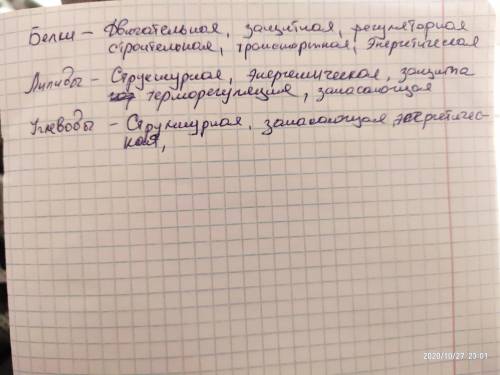 Белки – Двигательная, защитная, регуляторная
строительная, транспортная, Энергетическая
Липиды – Структурная, Энергетическая, защита
терморегуляция, запасающая
Углеводы – Структурная, запасающая энергетичес-
кая,
2020/10/27 20:01